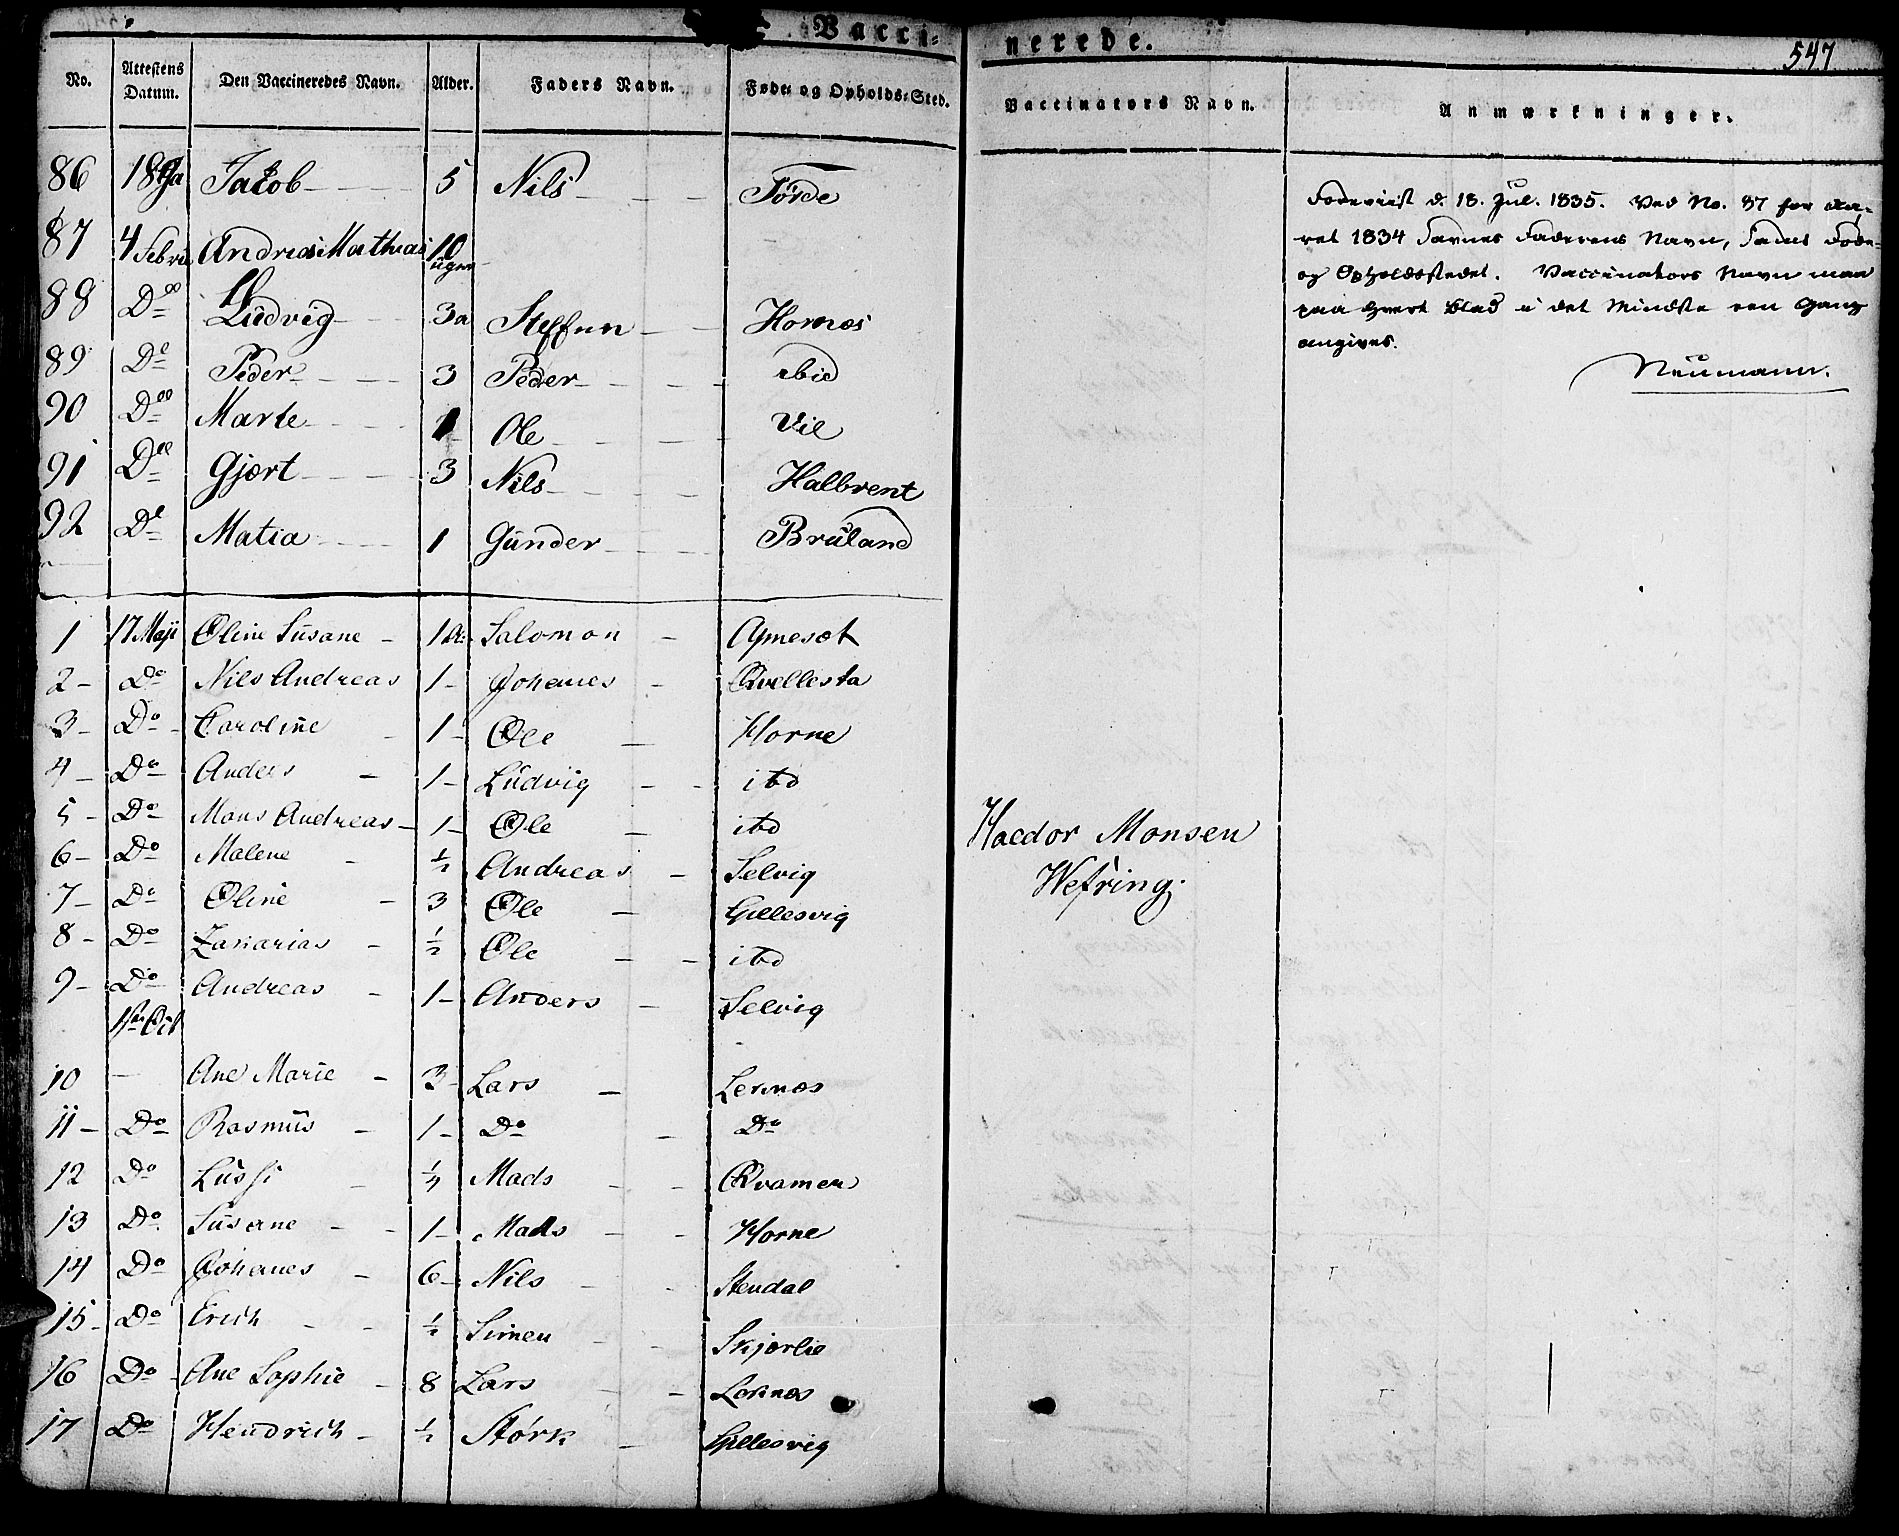 Vacci-
nerede.
547
No. Attestens Datum. Den Vaccineredes Navn. Alder. Faders Navn. Føde- og Opholds-Sted. Vaccinators Navn. Anmærkninger.
86 Jacob 5 Nils Førde
87 4 Febru Andreas Mathias 10 uger
88 Do Ludvig 3a Steffen Hornes
89 Do Peder 3 Peder ibid
90 Do Marte 1 Ole Vie
91 Do Gjert 3 Nils Halbrent
92 Do Matia 1 Gunder Bruland
Foreviist d. 18. Jul. 1835. Ved No. 87 for Aa-
ret 1834 savnes Faderens Navn, samt Føde-
og Opholdsstedet. Vaccinators Navn maa
paa hvert Blad i det Mindste een Gang
angives.
Neumann.
1 17 Maji Oline Susane - 1 Salomon - 
2 - Do Nils Andreas 1 - Johanes - Qvellesta
3 - Do - Caroline - 1 - Ole - Horne
4 - Do Anders - 1 - Ludvig - - ibd
5 - Do Mons Andreas - 1 - Ole - ibd
6 - Do Malene - ½ Andreas - Selvig
7 - Do Oline - 3 Ole - Gillesvig
8 - Do Zakarias - ½ Ole - - ibd
9 - Do Andreas - 1 - Anders - Selvig
Haldor Monsen
Wefring.
10 - Ane Marie - 3 - Lars - Lernes
11 - Do Rasmus - 1 - Do - Do
12 Do Lussi - ¼ Mads - - Qvamen
13 Do Susane - - 1 - Mads - - Horne
14 Do Johanes - 6 - Nils - - Stendal
15 - Do Erich - - ½ Simen - - Skjerlie
16 Do - Ane Sophie - 8 Lars - - Lernes
17 Do Hendrich - ½ Størk - Gillesvig